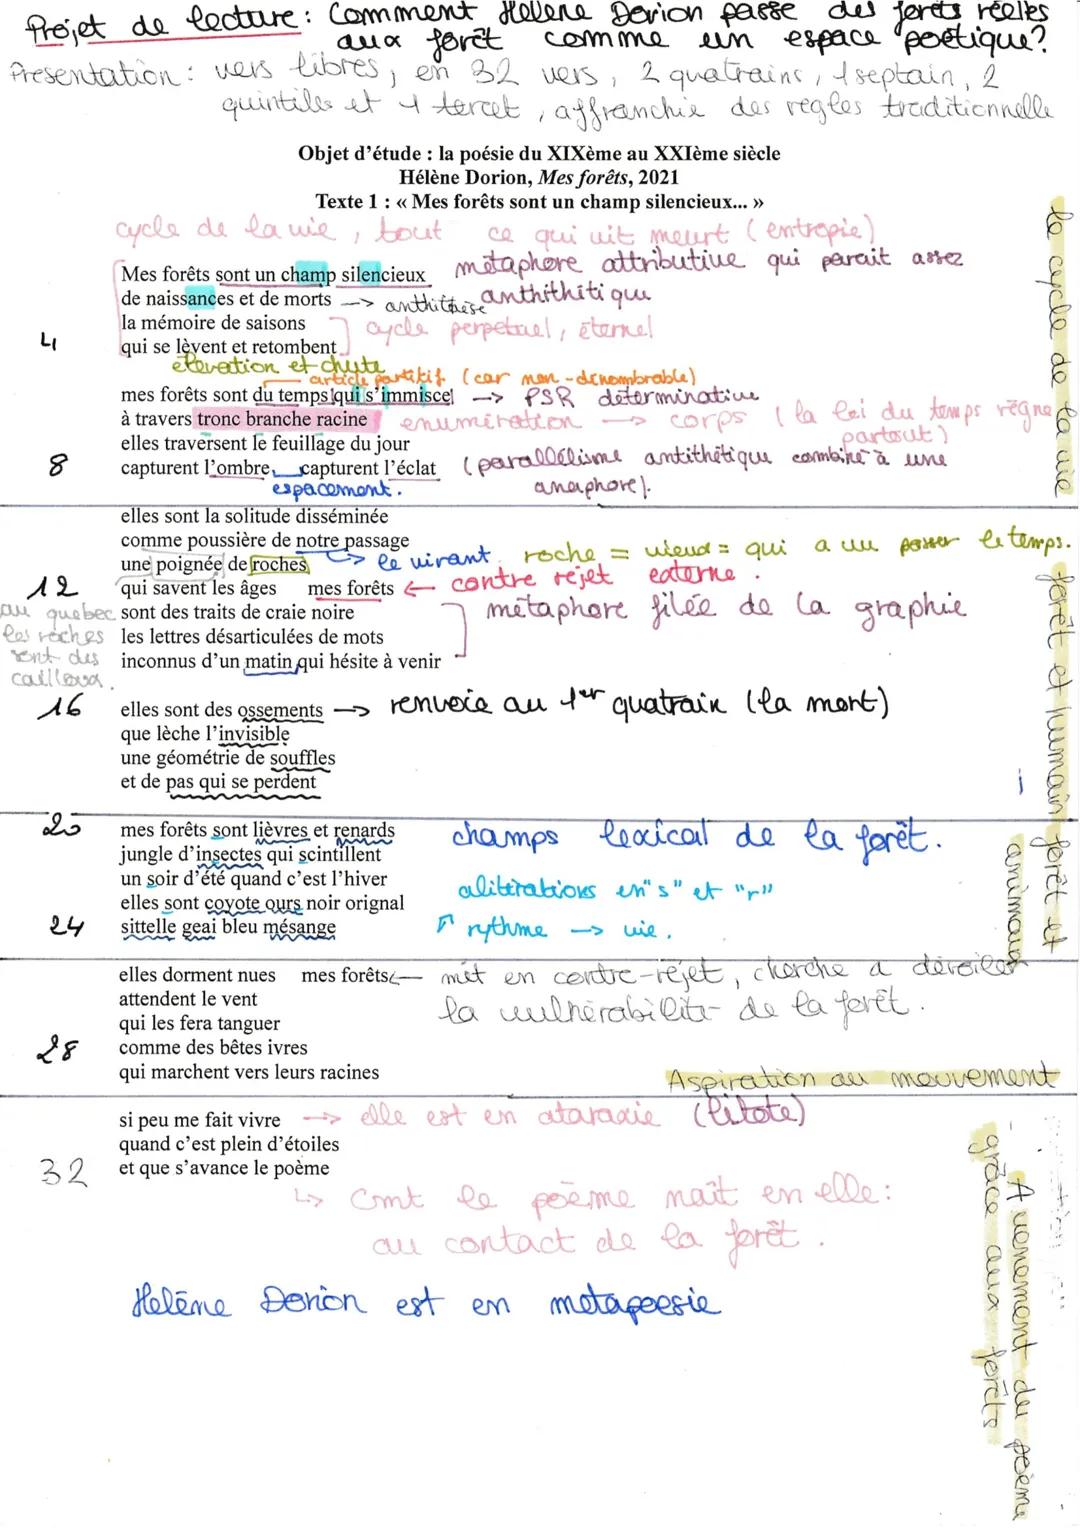 Projet de lecture : Comment Hélène Dorion passe des forêts réelles
aux forêt comme un espace poétique?
Présentation : vers libres, en 32 vers, 2 quatrains, 1 septain, 2
quintiles et 1 tercet, affranchie des règles traditionnelle
Objet d'étude : la poésie du XIXème au XXIème siècle
Hélène Dorion, Mes forêts, 2021
Texte 1 : « Mes forêts sont un champ silencieux... »
cycle de la vie, tout ce qui vit meurt (entropie)
Mes forêts sont un champ silencieux métaphore attributive qui parait assez
de naissances et de morts → anthithèse anthithétique
la mémoire de saisons cycle perpetuel, éternel
4 qui se lèvent et retombent
élevation et chute
article partitif (car non-dénombrable)
mes forêts sont du temps qui s'immisce → PSR déterminative
à travers tronc branche racine enumération → corps (la loi du temps règne
partout)
elles traversent le feuillage du jour
8 capturent l'ombre capturent l'éclat (parallélisme antithétique combiné à une
espacement. anaphore).
le cycle de la vie
elles sont la solitude disséminée
comme poussière de notre passage
une poignée de roches → le vivant. roche = vieux = qui a vu passer le temps.
12 qui savent les âges mes forêts ← contre rejet externe.
au quebec les roches sont des cailloux.
sont des traits de craie noire métaphore filée de la graphie
les lettres désarticulées de mots
inconnus d'un matin qui hésite à venir
16 elles sont des ossements → renvoie au 1er quatrain (la mort)
que lèche l'invisible
une géométrie de souffles
et de pas qui se perdent
forêt et humain
20 mes forêts sont lièvres et renards champs lexical de la forêt.
jungle d'insectes qui scintillent
un soir d'été quand c'est l'hiver alitérations en "s" et "r"
elles sont coyote ours noir orignal
24 sittelle geai bleu mésange rythme → vie.
forêt et animaux
elles dorment nues mes forêts ← mit en contre-rejet, cherche a dévoiler
attendent le vent la vulnérabilité de la forêt.
qui les fera tanguer
28 comme des bêtes ivres
qui marchent vers leurs racines
Aspiration au mouvement
si peu me fait vivre → elle est en ataraxie (litote)
quand c'est plein d'étoiles
32 et que s'avance le poème
↳ Cmt le poème naît en elle :
au contact de la forêt.
Hélène Dorion est en métapoesie
- Avenement du poème
grâce aux forêts